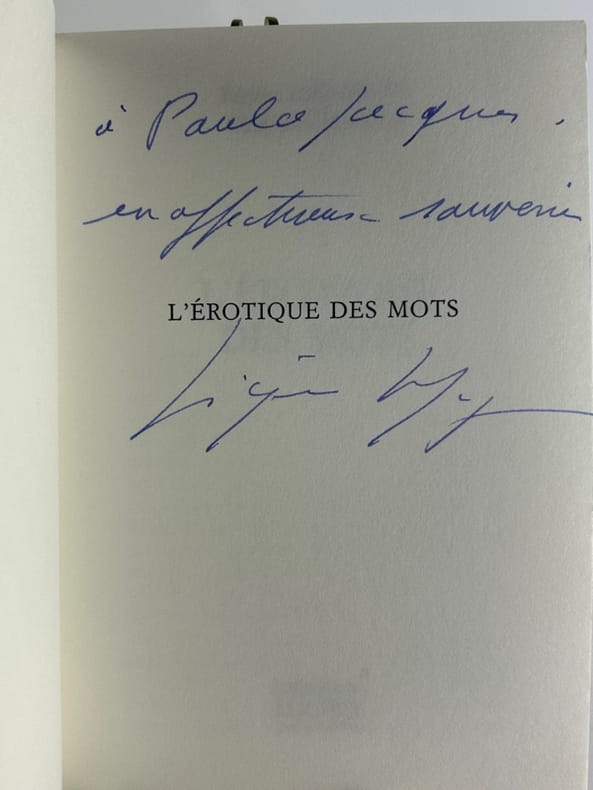 à Paula Jacques,
en affectueux souvenir
L'ÉROTIQUE DES MOTS
Régine